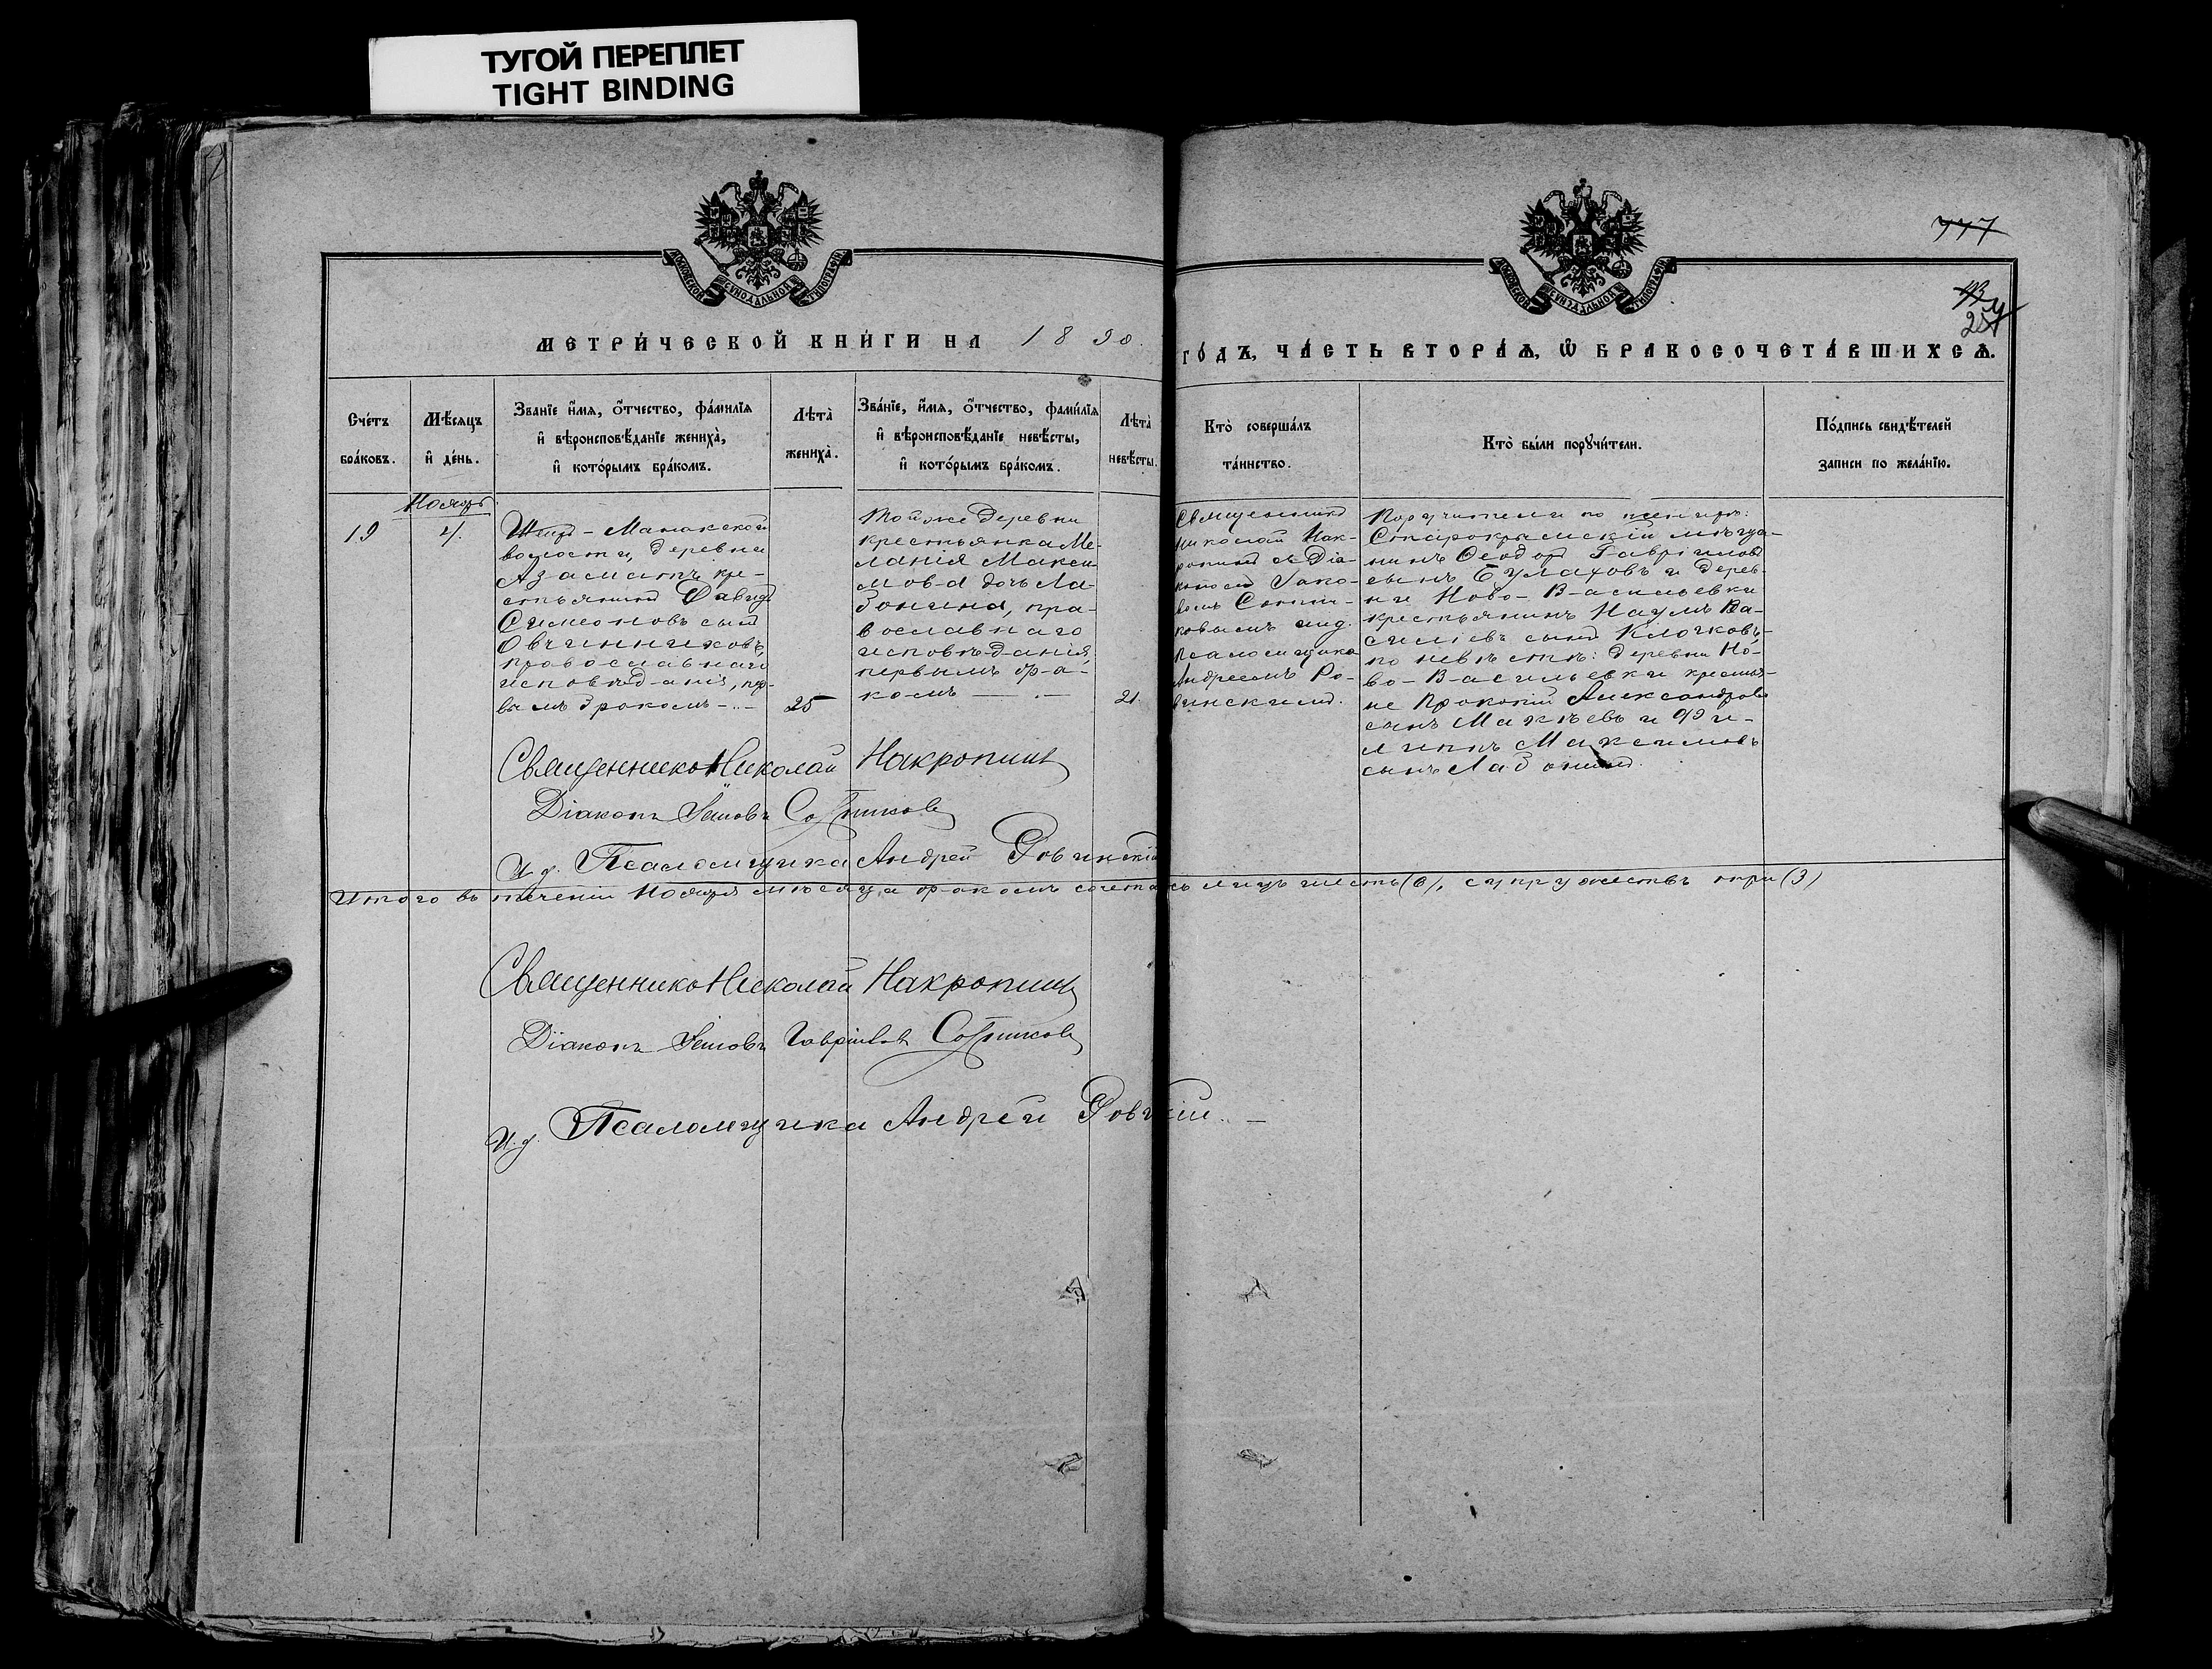 ТУГОЙ ПЕРЕПЛЕТ
TIGHT BINDING
МОСКОВСКОЙ СИНОДАЛЬНОЙ ТИПОГРАФІИ
МОСКОВСКОЙ СИНОДАЛЬНОЙ ТИПОГРАФІИ
777
254
МЕТРИ́ЧЕСКОЙ КНИ́ГИ НА 1890.
ГО́ДЪ, ЧА́СТЬ ВТОРА́Я, Ѡ БРАКОСОЧЕТА́ВШИХСЯ.
Сче́тъ
бра́ковъ.
Мѣ́сяцъ
и҆ де́нь.
Зва́нїе и҆́мя, о҆́тчество, фамѝлїя
и҆ вѣроисповѣ́данїе жениха̀,
и҆ кото́рымъ бра́комъ.
Лѣта̀
жениха̀.
Зва́нїе, и҆́мя, о҆́тчество, фами́лїя
и҆ вѣроисповѣ́данїе невѣ́сты,
и҆ кото́рымъ бра́комъ.
Лѣта̀
невѣ́сты.
Кто̀ соверша́лъ
та́инство.
Кто̀ бы́ли порꙋчи́тели.
По́дпись свидѣ́телей
записи по жела́нїю.
Ноябрь
19
4.
Шейх-Манакской
волости, деревни
Азаматъ кре-
стьянинъ Давидъ
Симеоновъ сынъ
Овчинниковъ,
православнаго
исповѣданія, пер-
вымъ бракомъ
25
Той же деревни
крестьянка Ме-
ланія Макси-
мова дочь Ла-
зонина, пра-
вославнаго
исповѣданія,
первымъ бра-
комъ
21.
Священникъ
Николай Нак-
ропинъ съ Діа-
кономъ Іако-
вомъ Сотни-
ковымъ и и.д.
Псаломщика
Андреемъ Ро-
винскимъ.
Поручители по женихѣ:
Старокрымскій мѣща-
нинъ Ѳеодоръ Гавріиловъ
сынъ Булаховъ и дерев-
ни Ново-Васильевки
крестьянинъ Наумъ Ва-
силіевъ сынъ Клочковъ,
по невѣстѣ: деревни Но-
во-Васильевки крестья-
не Прокопій Александровъ
сынъ Макѣевъ и Фи-
липпъ Максимовъ
сынъ Лазонинъ.
Священникъ Николай Накропинъ
Діаконъ Іаковъ Сотниковъ
И.д. Псаломщика Андрей Ровинскій
Итого въ теченіи Ноября мѣсяца бракомъ сочетась лицъ шесть (6), супружествъ три (3)
Священникъ Николай Накропинъ
Діаконъ Іаковъ Гавріиловъ Сотниковъ
И.д. Псаломщика Андрей